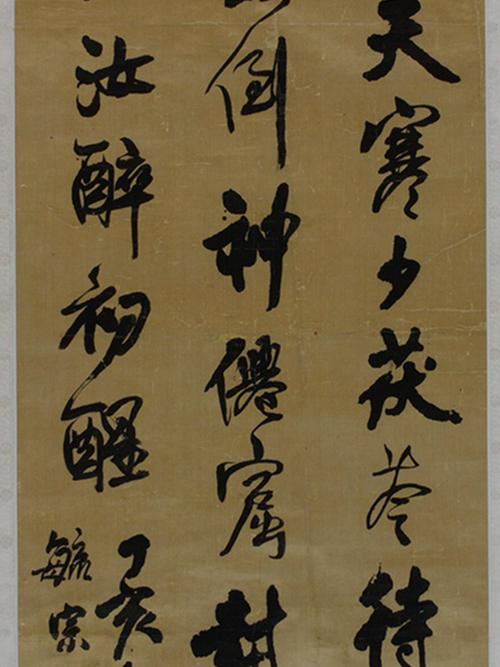 天寒少茯苓待
倒神僊窟封
汝醉初醒
丁亥
毓宗